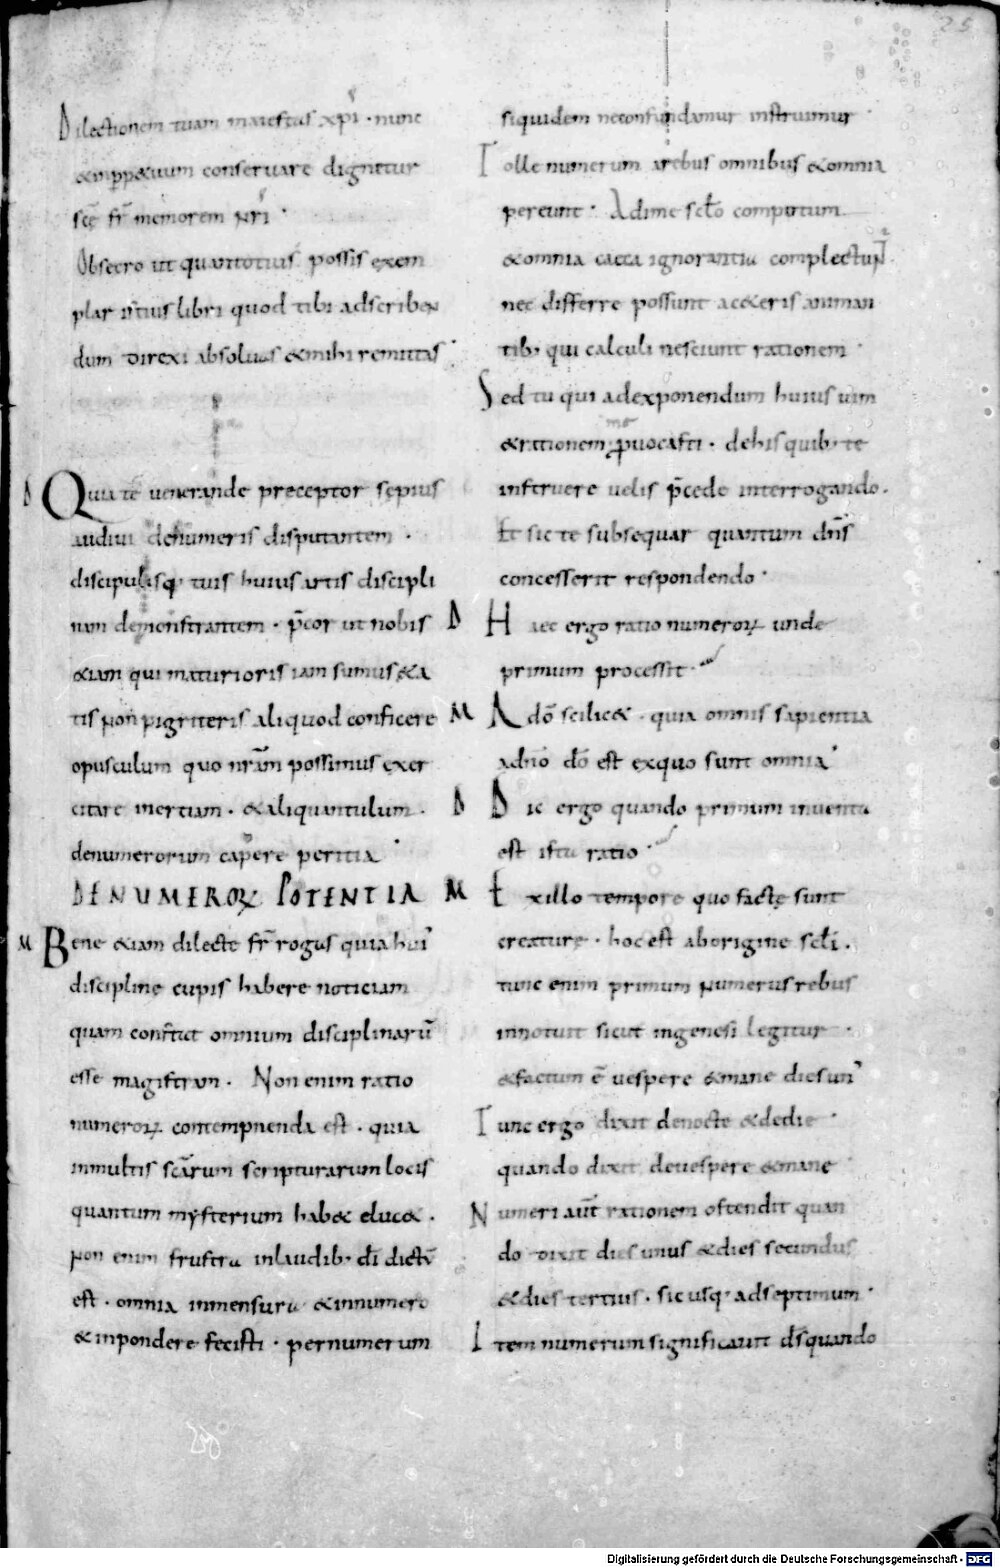 25
Dilectionem tuam maiestas xpi · nunc
& inpp&uum conservare dignetur
scę fr̄ memorem nr̄i ·
Obsecro ut quantotius possis exem
plar istius libri quod tibi adscriben
dum direxi absoluas & mihi remittas ·
Δ Quia te uenerande preceptor sępius
audiui denumeris disputantem ·
discipulisq· tuis huius artis discipli
nam demonstrantem · p̄cor ut nobis
&iam qui maturioris iam sumus &a
tis non pigriteris aliquod conficere
opusculum quo nr̄am possimus exer
citare inertiam · & aliquantulum
denumerorum capere peritia ·
DE NUMEROꝜ POTENTIA
M Bene &iam dilecte fr̄ rogas quia hui'
discipline cupis habere noticiam
quam constat omnium disciplinarū
esse magistram · Non enim ratio
numeroꝝ contempnenda est · quia
inmultis scārum scripturarum locis
quantum mysterium hab& eluc& ·
non enim frustra inlaudib· dī dictū
est · omnia inmensura & innumero
& inpondere fecisti · pernumerum
siquidem neconfundamur instruimur ·
Tolle numerum arebus omnibus & omnia
pereunt · Adime sclō computum
& omnia caeca ignorantia complectunt̄
nec differre possunt acęteris animan
tib· qui calculi nesciunt rationem ·
Sed tu qui adexponendum huius uim
& rationem me p̱uocasti · dehis quib· te
instruere uelis p̄cede interrogando ·
Et sic te subsequar quantum dn̄s
concesserit respondendo ·
Δ Haec ergo ratio numeroꝝ unde
primum processit ·
M Adō scilic& · quia omnis sapientia
adn̄o dō est exquo sunt omnia ·
Δ Dic ergo quando primum inuenta
est ista ratio ·
M Exillo tempore quo factę sunt
creature · hoc est aborigine sclī ·
tunc enim primum numerus rebus
innotuit sicut ingenesi legitur ·
& factum ē uespere & mane dies un'
Tunc ergo dixit denocte & dedie ·
quando dixit deuespere & mane
Numeri aūt rationem ostendit quan
do dixit dies unus & dies secundus
& dies tertius · sic usq· adseptimum ·
Item numerum significauit d̄s quando
Digitalisierung gefördert durch die Deutsche Forschungsgemeinschaft - DFG